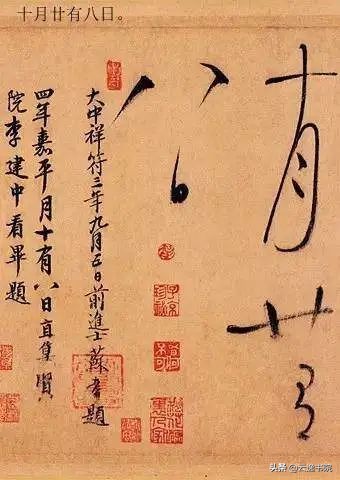 十月廿有八日。
十月廿有
八日
大中祥符三年九月五日前進士蘇耆題
四年嘉平月十有八日直集賢
院李建中看畢題
头条